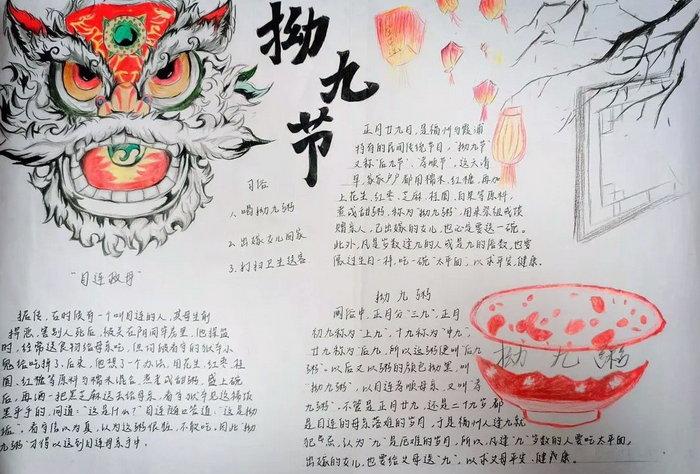 拗九节
正月廿九日,是福州与霞浦
特有的民间传统节日,"拗九节"
又称"后九节"、孝顺节",这天清
早,家家户户都用糯米,红糖,再加
上花生,红枣,芝麻,桂圆,白果等原料,
煮成甜粥,称为"拗九粥",用来祭祖或馈
赠亲人,已出嫁的女儿,也必定要送一碗。
此外,凡是岁数逢九的人或是九的倍数,也要
像过生日一样,吃一碗"太平面",以求平安、健康。
习俗
1.喝拗九粥
2.出嫁女儿回家
3.打扫卫生送穷
"目连救母"
据传,在时候有一个叫目连的人,其母生前
得恶,害别人死后,被关在阴间牢房里,他探监
时,经常送食物给母亲吃,但均被看守的狱卒小
鬼给吃掉了,后来,他想了个办法,用花生,红枣,桂
圆,红糖等原料与糯米混合,煮成甜粥,盛上碗
后,再洒一把芝麻送去给母亲,看守狱卒见这桶
黑乎乎的,问道:"这是什么?"目连随口答道,"这是拗
垢",看守信以为真,认为这粥很脏,不敢吃,因此"拗
九粥"才得以送到目连母亲手中。
拗九粥
闽俗中,正月分"三九",正月
初九称为"上九",十九称为"中九",
廿九称为"后九,所以这粥便叫"后九
粥",以后又以粥的颜色拗黑,叫
"拗九粥",以目连孝顺母亲,又叫"孝
九粥",不管是正月廿九,还是二十九岁都
是目连的母亲苦难的岁月,于是福州人逢九就
犯忌,认为"九"是厄难的岁月,所以凡逢"九"岁数的人要吃太平面,
出嫁的女儿,也要给父母送"九",以求父母平安、健康。
拗九粥